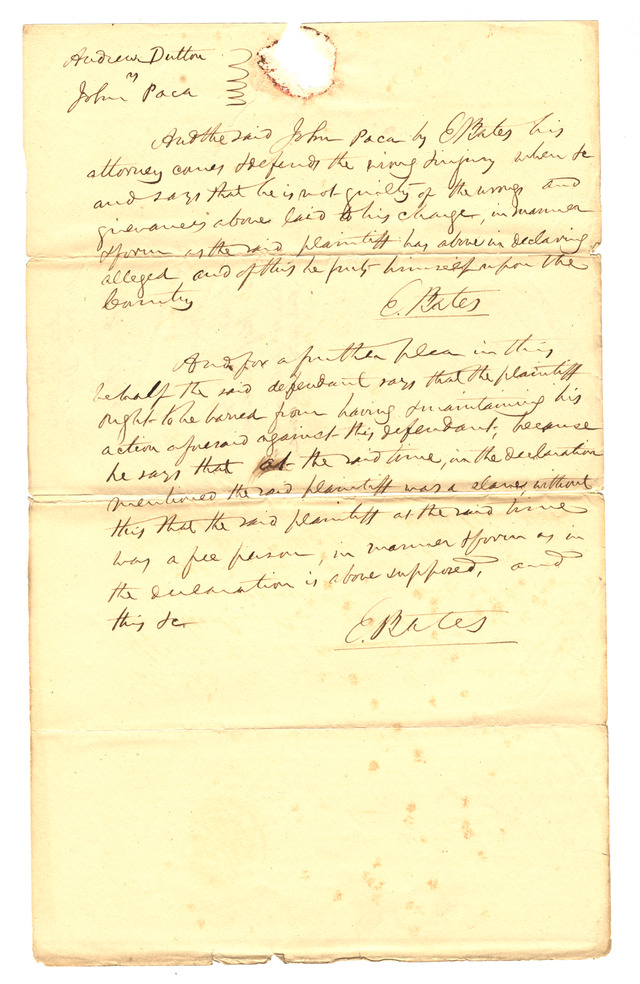 Andrew Dutton
vs
John Paca
And the said John Paca by E Bates his
attorney comes & defends the wrong & injury when &c
and says that he is not guilty of the wrongs and
grievances above laid to his charge, in manner
& form as the said plaintiff has above in declaring
alleged and of this he puts himself upon the
Country
E. Bates
And for a further plea in this
behalf the said defendant says that the plaintiff
ought to be barred from having & maintaining his
action aforesaid against this defendant, because
he says that at the said time, in the declaration
mentioned the said plaintiff was a slave, without
this that the said plaintiff at the said time
was a free person, in manner & form as in
the declaration is above supposed, and
this &c
E. Bates